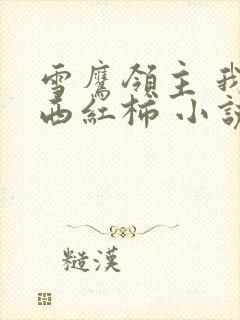 雪鷹領主 我
西紅柿 小說
糙漢